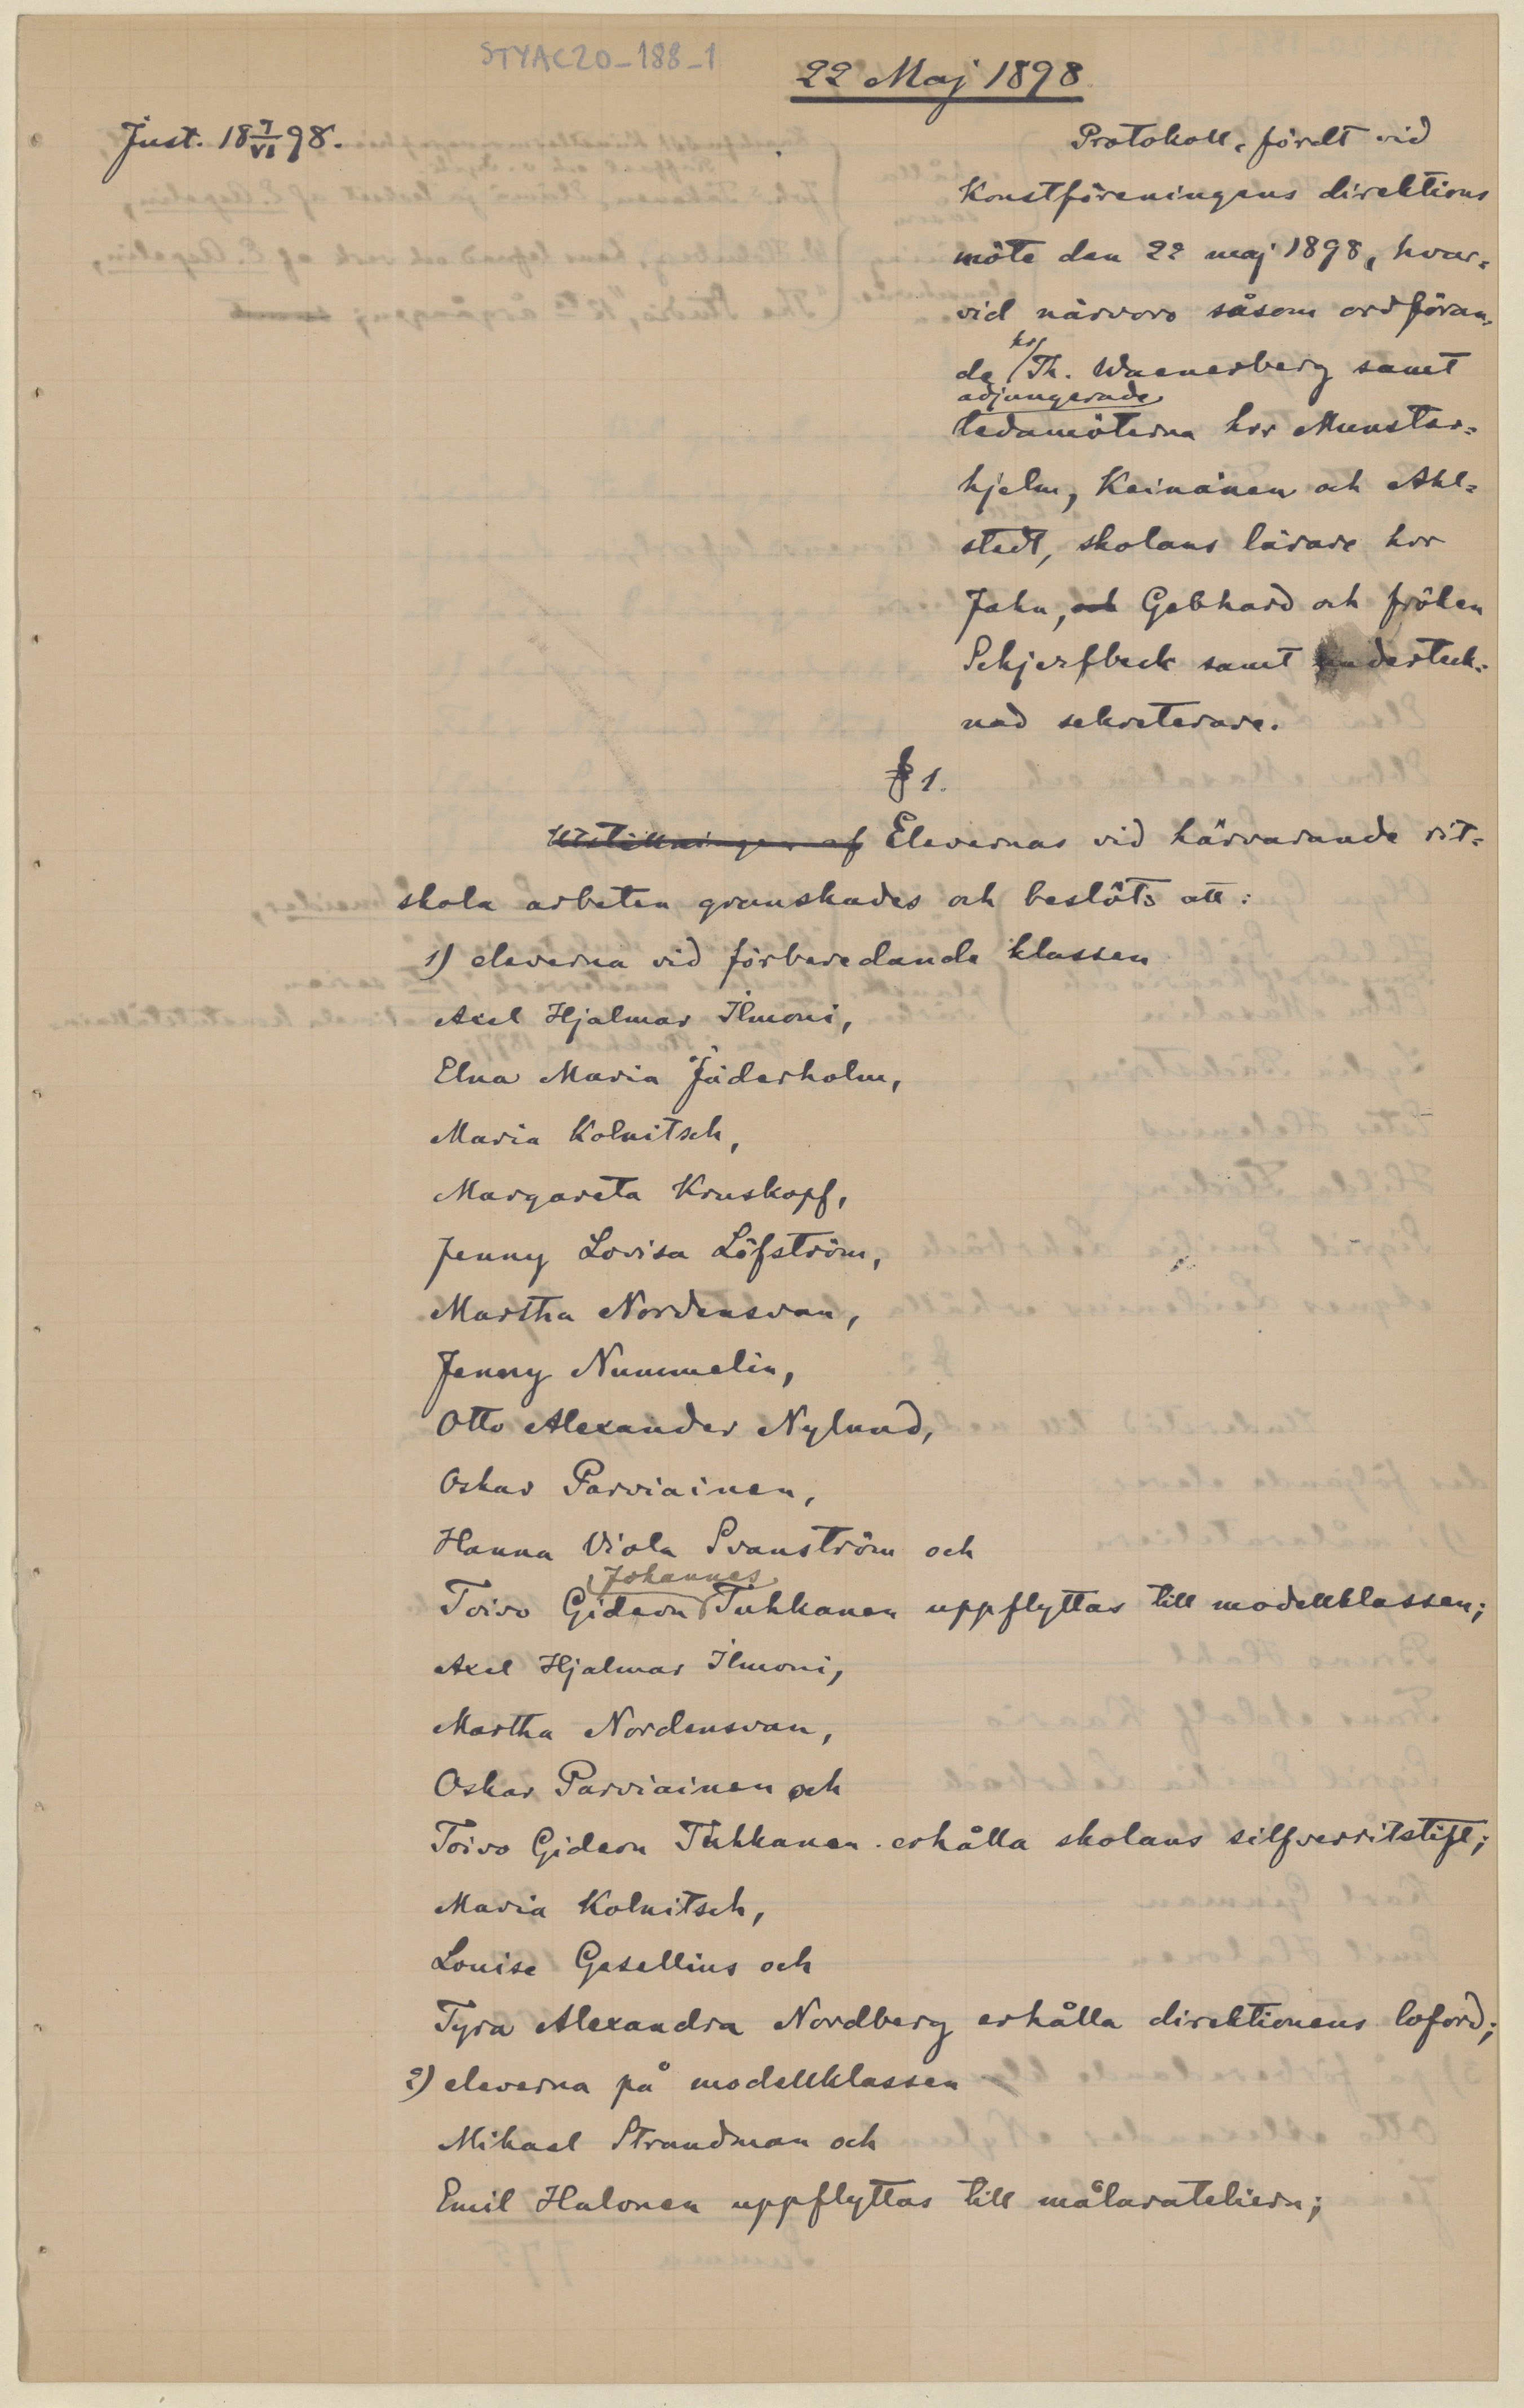 STYAC20-188-1
22 Maj 1898
Just. 18 7/VI 98.
Protokoll, fördt vid
Konstföreningens direktions
möte den 22 maj 1898, hvar=
vid närvoro såsom ordföran=
de hr Th. Waenerberg samt
adjungerade
ledamöterna hrr Munster=
hjelm, Keinänen och Ahl=
stedt, skolans lärare hrr
Jahn, och Gebhard och fröken
Schjerfbeck samt underteck=
nad sekreterare.
§ 1.
Utställningen af Elevernas vid härvarande rit=
skola arbeten granskades och beslöts att:
1) eleverna vid förberedande klassen
Axel Hjalmar Ilmoni,
Elna Maria Jäderholm,
Maria Kolnitsch,
Margareta Kruskopf,
Jenny Lovisa Löfström,
Martha Nordensvan,
Jenny Nummelin,
Otto Alexander Nylund,
Oskar Parviainen,
Hanna Viola Svanström och
Johannes
Toivo Gideon Tuhkanen uppflyttas till modellklassen;
Axel Hjalmar Ilmoni,
Martha Nordensvan,
Oskar Parviainen och
Toivo Gideon Tuhkanen erhålla skolans silfverritstift;
Maria Kolnitsch,
Louise Gesellius och
Tyra Alexandra Nordberg erhålla direktionens loford;
2) eleverna på modellklassen
Mikael Strandman och
Emil Halonen uppflyttas till målarateliern;